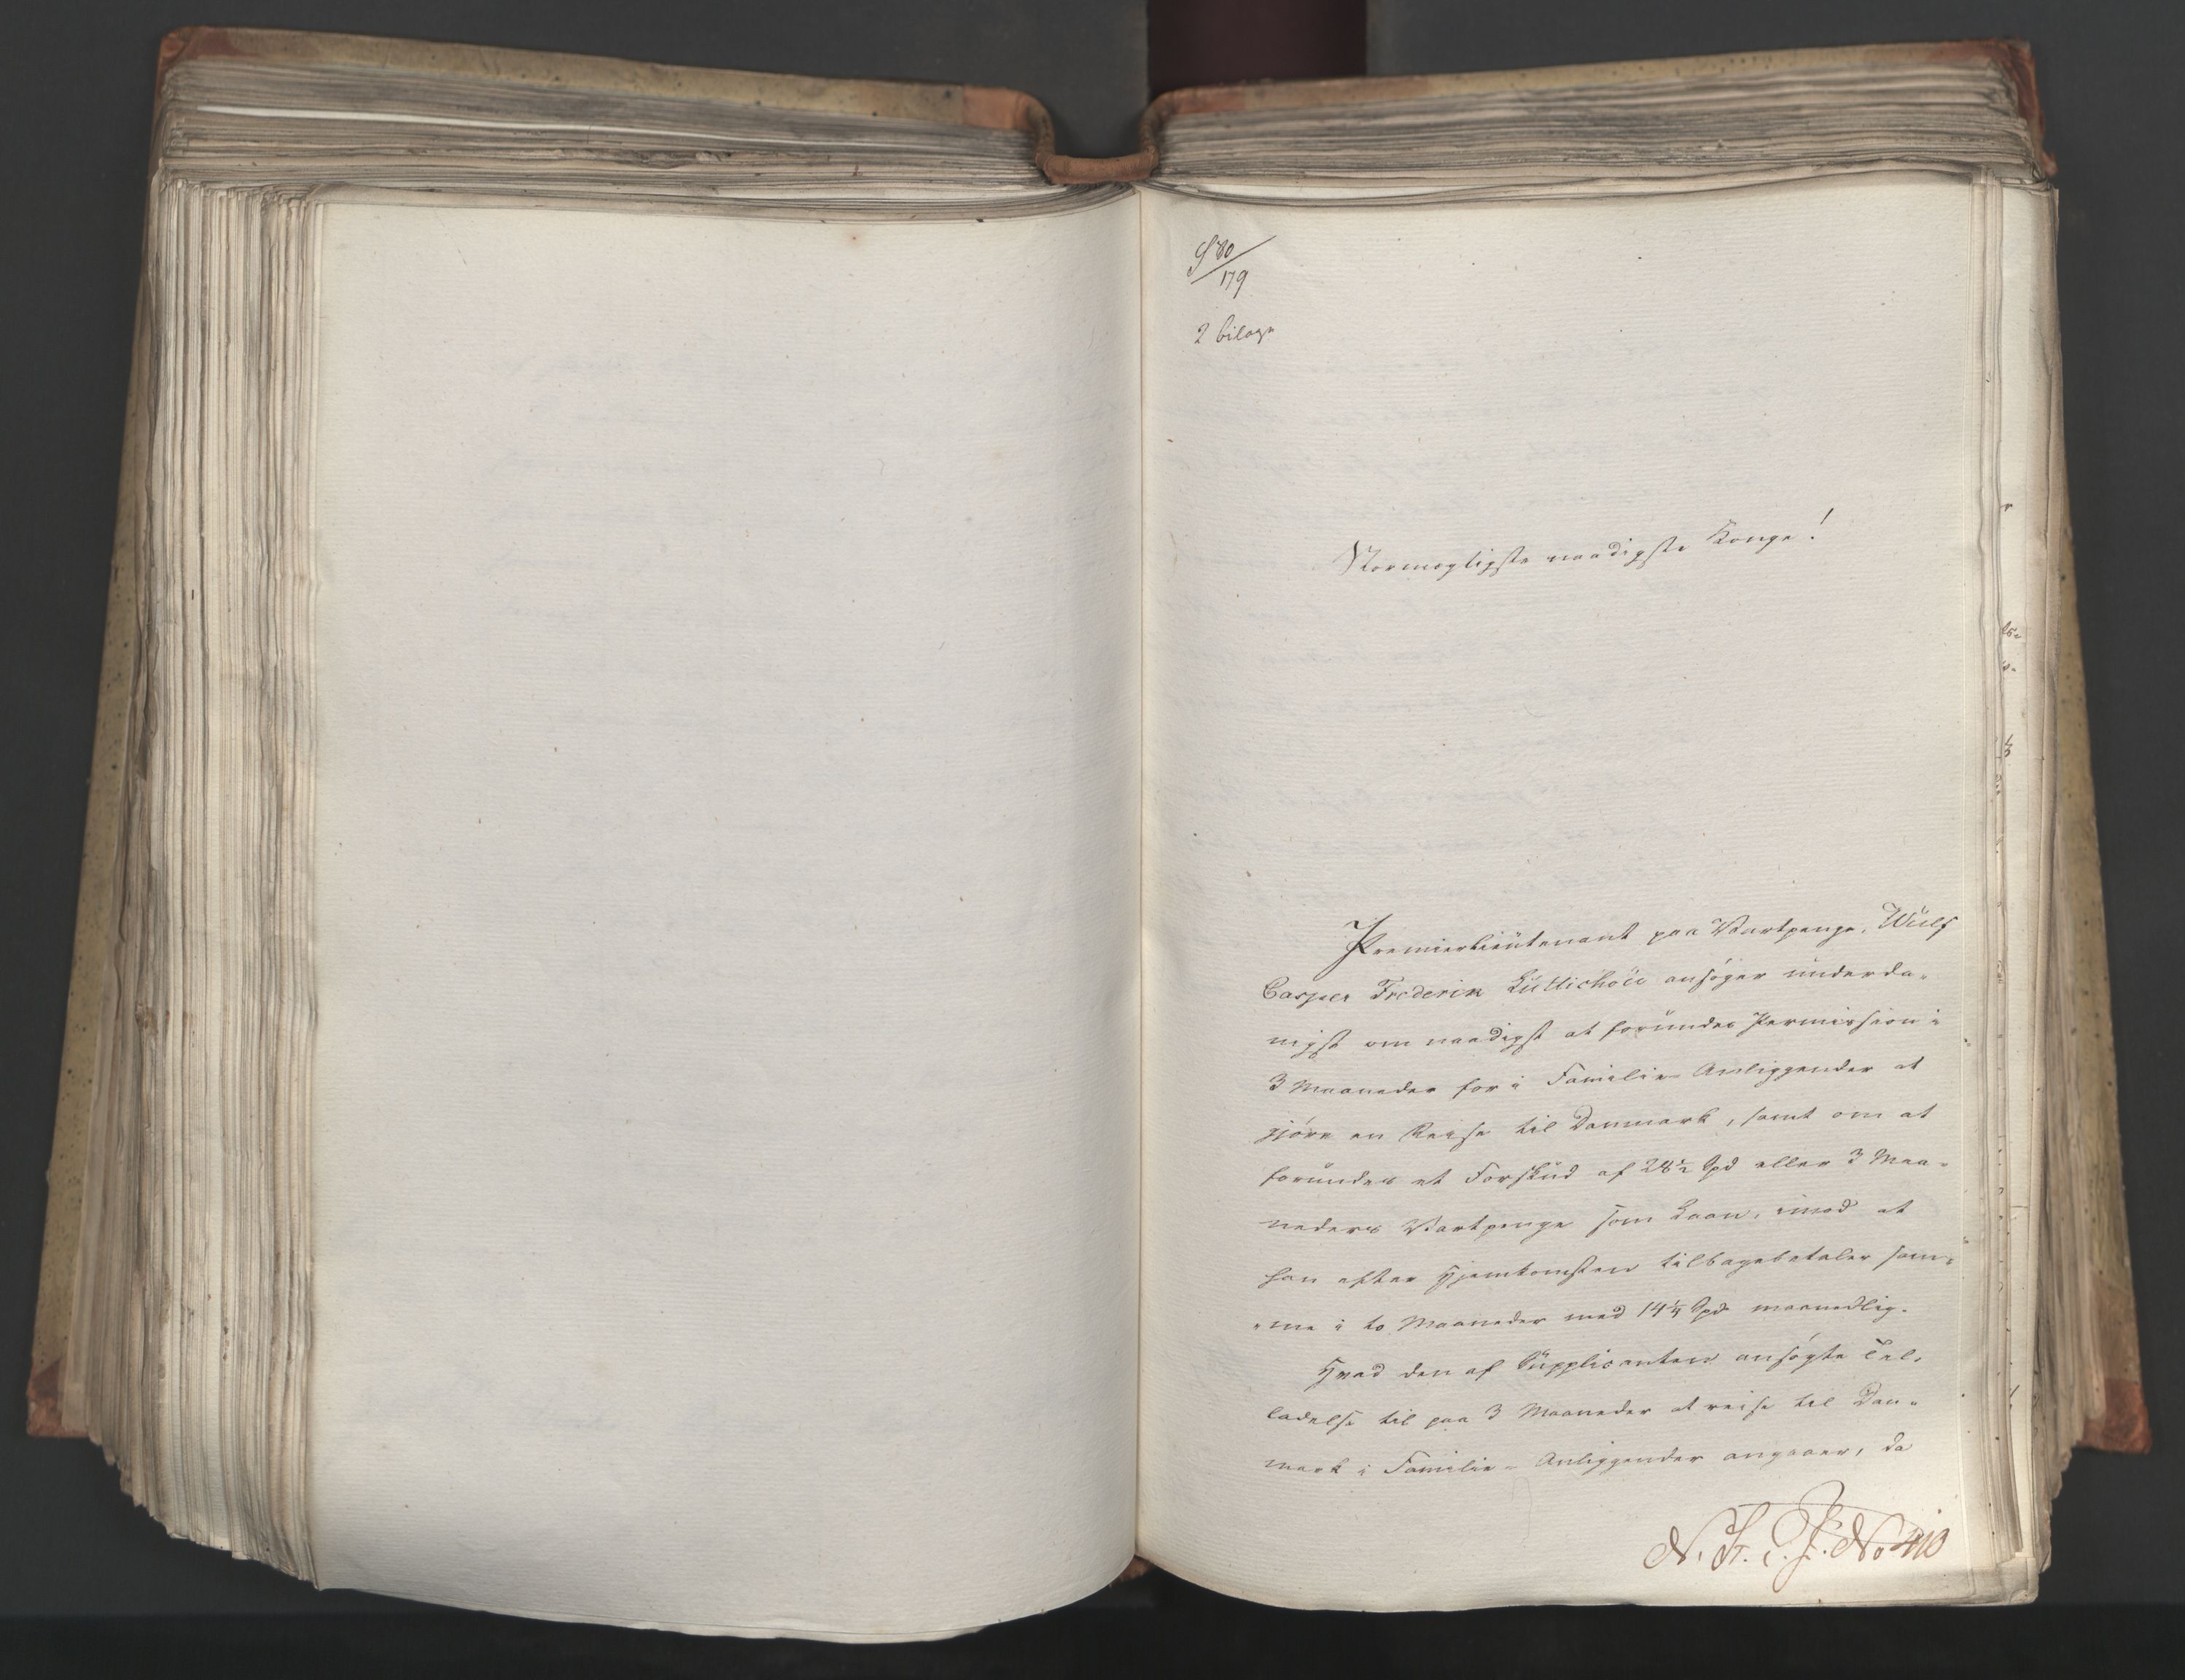 2 bilage
Stormægtigste naadigste Konge!
Premierlieutenant paa Vartpenge, Wulf
Casper Frederik Lüttichau ansøger underda-
nigst om naadigst at forundes Permission i
3 Maaneder for i Familie-Anliggender at
gjøre en Reise til Danmark, samt om at
forundes et Forskud af 28½ Spd eller 3 Maa-
neders Vartpenge som Laan, imod at
han efter Hjemkomsten tilbagebetaler sam-
"me i to Maaneder med 14¼ Spd maanedlig.
Hvad den af Supplicanten ansøgte Til-
ladelse til paa 3 Maaneder at reise til Dan-
mark i Familie-Anliggender angaaer, da